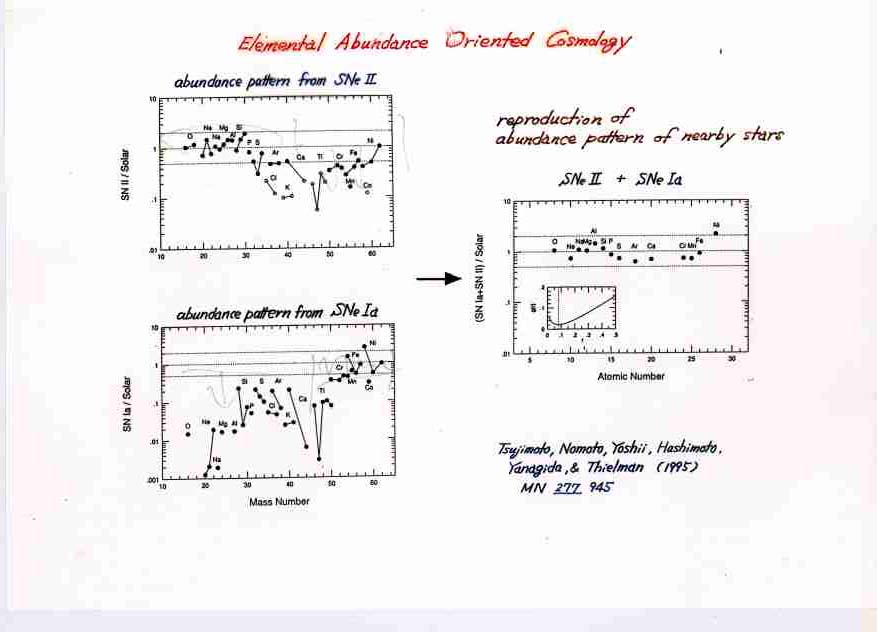 Elemental Abundance Oriented Cosmology
abundance pattern from SNe II
10
1
.1
.01
SN II / Solar
O
Ne
Na
Mg
Al
Si
P S
Cl
Ar
K
Ca
Ti
Cr
Mn
Fe
Co
Ni
10 20 30 40 50 60
abundance pattern from SNe Ia
10
1
.1
.01
.001
SN Ia / Solar
O
Ne
Na
Mg
Al
Si
P
S
Cl
Ar
K
Ca
Ti
Cr
Mn
Fe
Co
Ni
10 20 30 40 50 60
Mass Number
reproduction of
abundance pattern of nearby stars
SNe II + SNe Ia
10
1
.1
.01
(SN Ia+SN II) / Solar
O
Ne
Na
Mg
Al
Si
P
S
Ar
Ca
Cr
Mn
Fe
Ni
.2
.1
0
0 .1 .2 .3 .4 .5
r
5 10 15 20 25 30
Atomic Number
Tsujimoto, Nomoto, Yoshii, Hashimoto,
Yanagida, & Thielman (1995)
MN 277 945